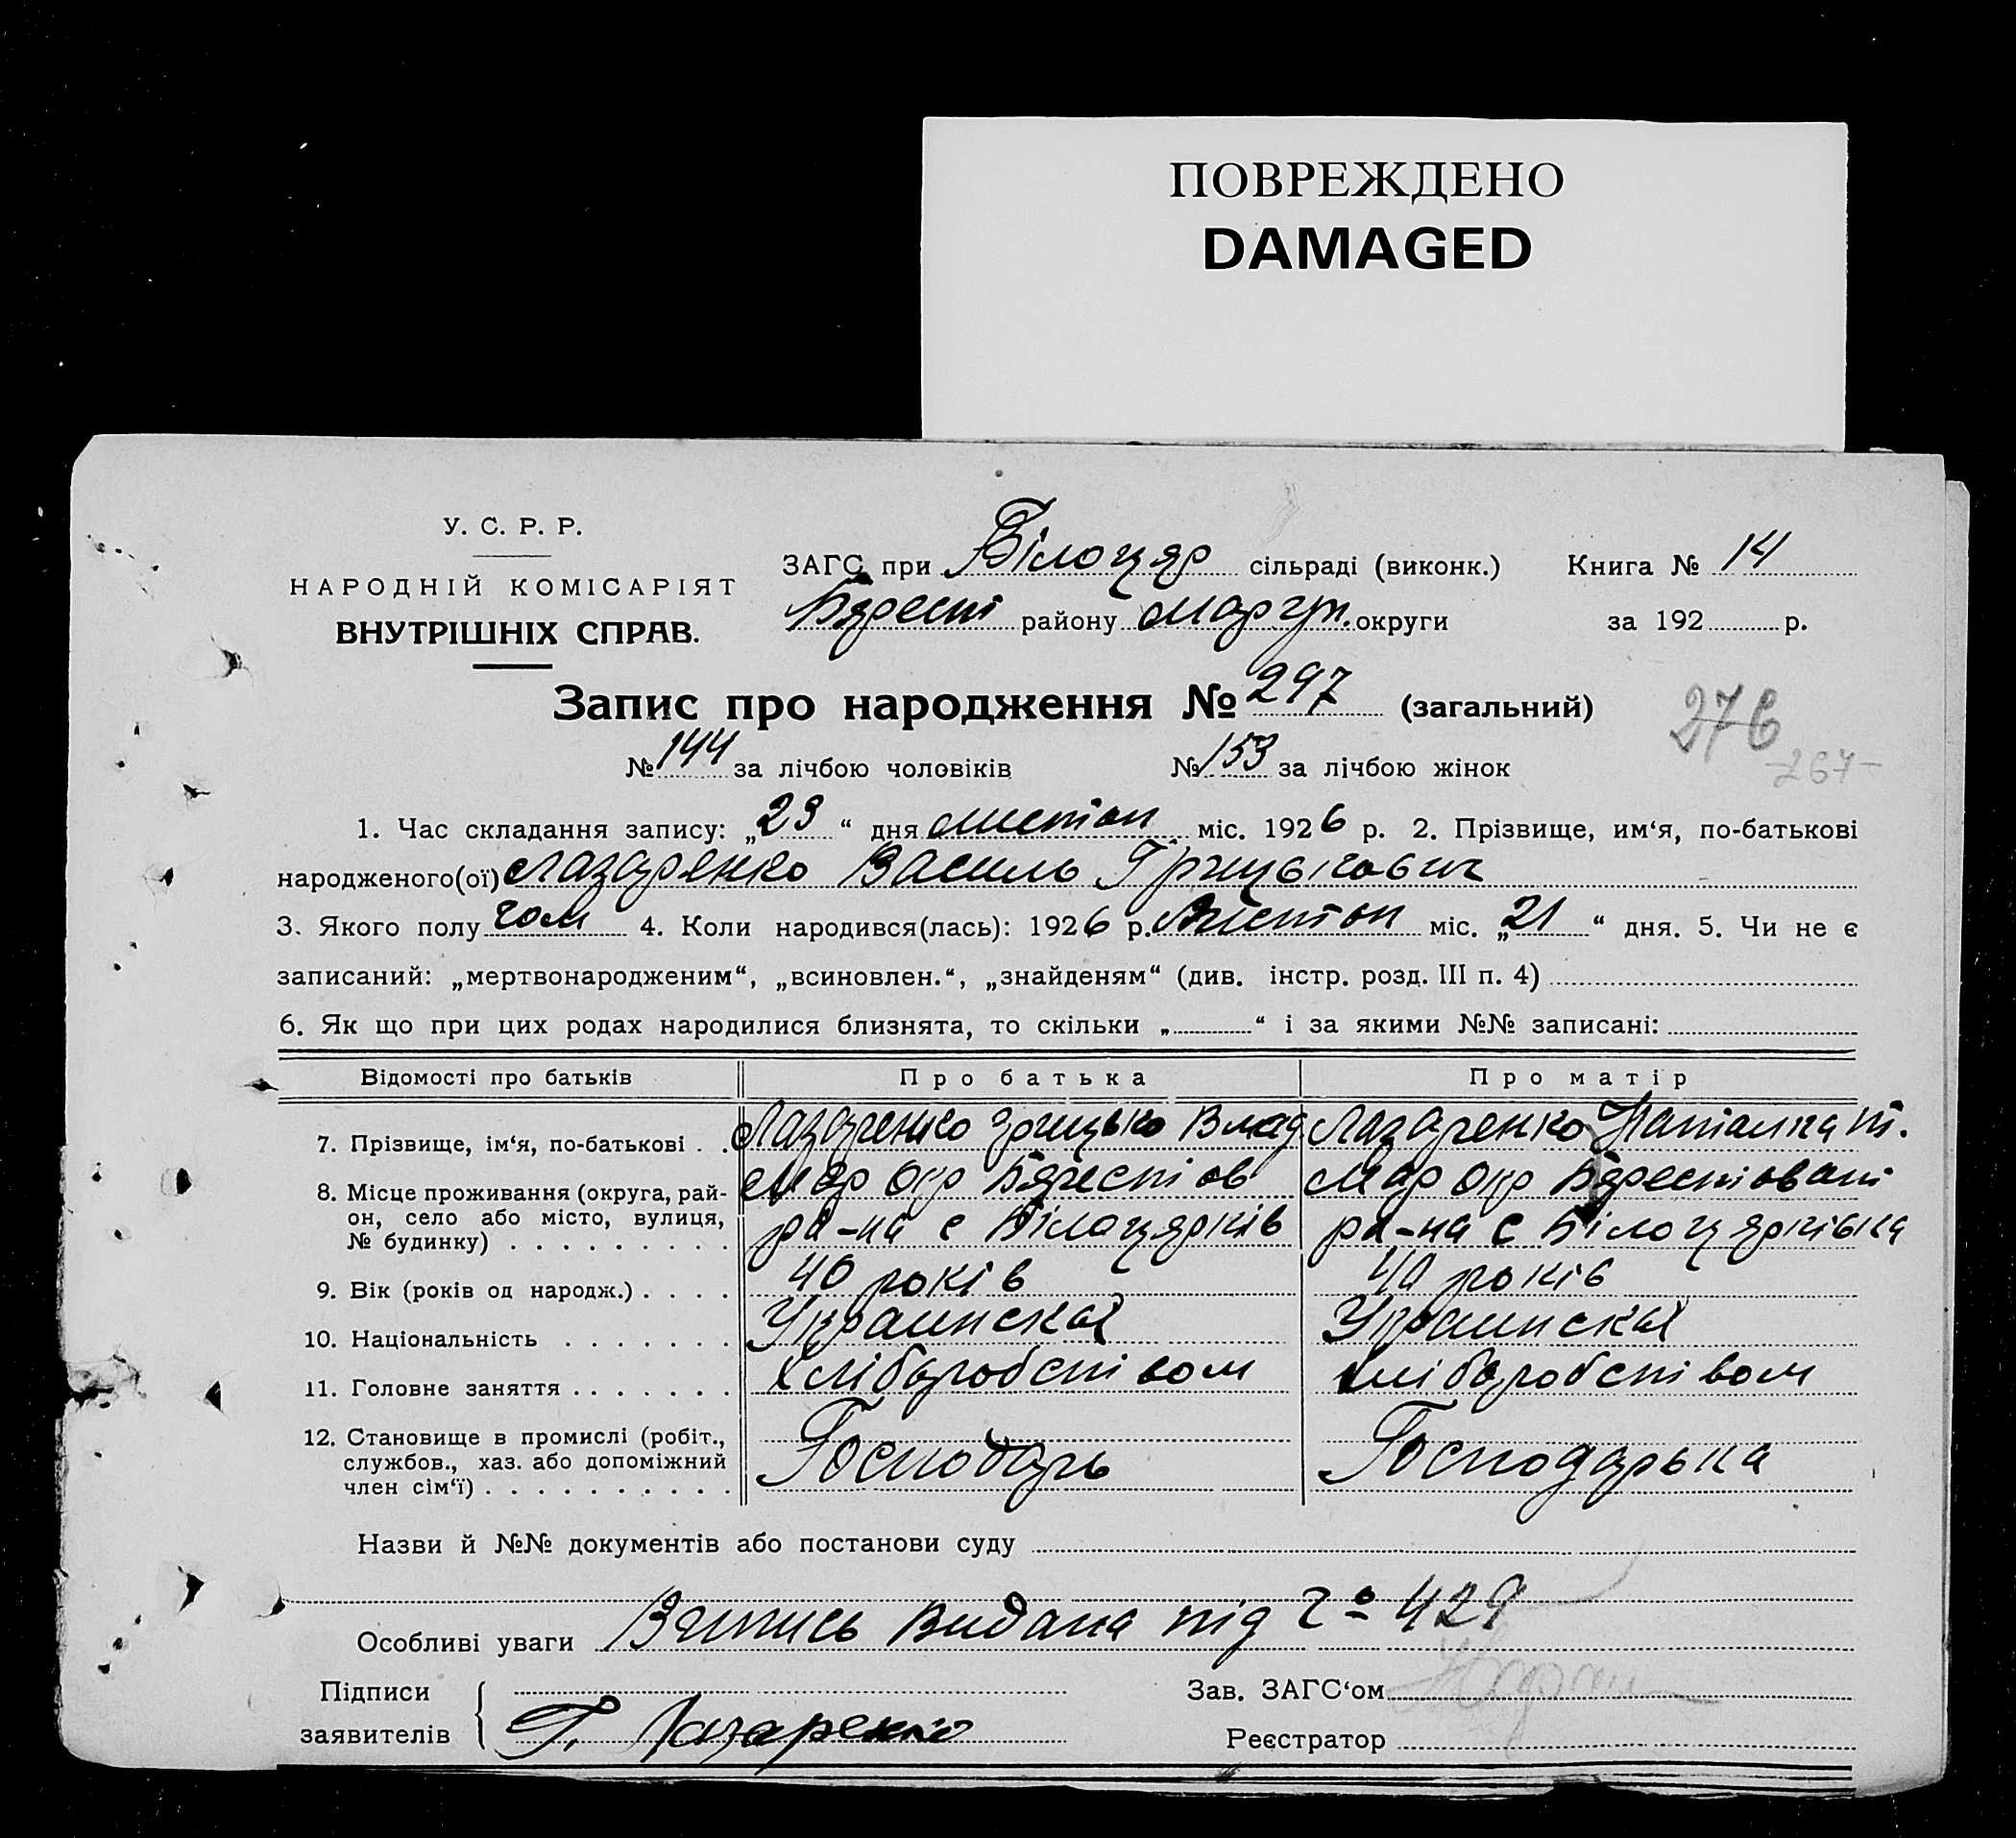 ПОВРЕЖДЕНО
DAMAGED
У. С. Р. Р.
НАРОДНІЙ КОМІСАРІЯТ
ВНУТРІШНІХ СПРАВ.
ЗАГС при Білоцяр сільраді (виконк.) Книга № 14
Бересті району Маріуп. округи за 192 р.
Запис про народження № 297 (загальний)
276
№ 144 за лічбою чоловіків № 153 за лічбою жінок
-267-
1. Час складання запису: „23“ дня листоп міс. 1926 р. 2. Прізвище, им‘я, по-батькові
народженого(ої) Лазаренко Василь Грицькович
3. Якого полу чол 4. Коли народився(лась): 1926 р. Листоп міс. „21“ дня. 5. Чи не є
записаний: „мертвонародженим“, „всиновлен.“, „знайденям“ (див. інстр. розд. III п. 4)
6. Як що при цих родах народилися близнята, то скільки „ “ і за якими №№ записані:
Відомості про батьків Про батька Про матір
7. Прізвище, ім‘я, по-батькові . . Лазаренко Грицько Влад Лазаренко Наталка т.
8. Місце проживання (округа, рай- Мар окр Берестов Мар окр Берестоват
он, село або місто, вулиця, ра-на с Білоцярків ра-на с Білоцярківка
№ будинку) . . . . . . . . .
9. Вік (років од народж.) . . . . 40 років 40 років
10. Національність . . . . . . . Украинская Украинская
11. Головне заняття . . . . . . . Хліборобством хліборобством
12. Становище в промислі (робіт.,
службов., хаз. або допоміжний Господарь Господарька
член сім‘ї) . . . . . . . . . .
Назви й №№ документів або постанови суду
Особливі уваги Випись видана під № 429
Підписи Зав. ЗАГС‘ом
заявителів Г. Лазаренко Реєстратор